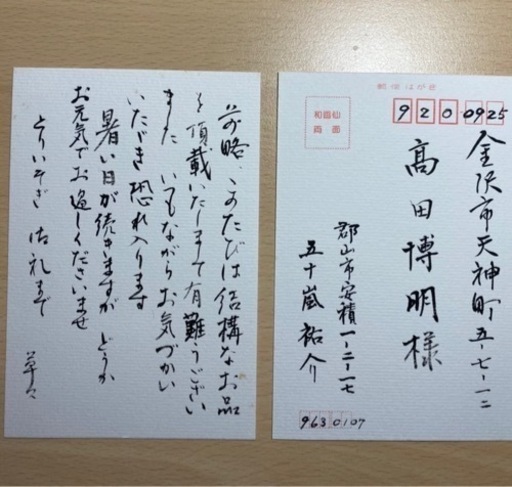 前略、このたびは結構なお品
を頂載いたしまして有難うござい
ました いつもながらお気づかい
いただき恐れ入ります
暑い日が続きますが どうか
お元気でお過しくださいませ
とりいそぎ 御礼まで
草々
郵便はがき
920-0925
金沢市天神町五-七-一二
高田博明様
郡山市安積一-二-一七
五十嵐祐介
9630107